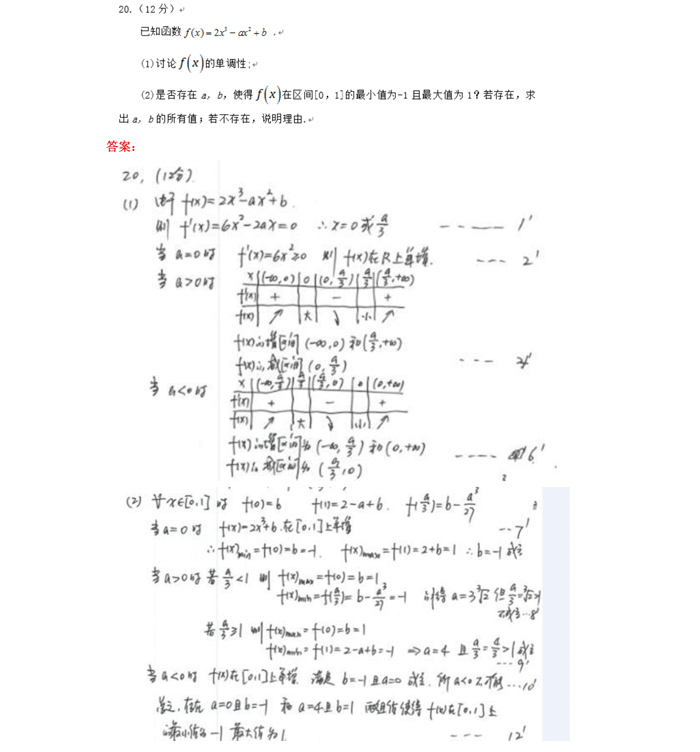 20.（12分）
已知函数 f(x)=2x³-ax²+b .
(1)讨论f(x)的单调性;
(2)是否存在 a，b，使得f(x)在区间[0，1]的最小值为-1 且最大值为 1？若存在，求
出 a，b 的所有值；若不存在，说明理由.
答案：
20，(12分)
(1) 由于 f(x)=2x³-ax²+b.
则 f'(x)=6x²-2ax=0 ∴x=0或a/3 ----- 1'
当 a=0时 f'(x)=6x²≥0 则 f(x)在R上单增. --- 2'
当 a>0时 x (-∞,0) 0 (0,a/3) a/3 (a/3,+∞)
f'(x) + - +
f(x) ↗ 大 ↘ 小 ↗
f(x)的增区间 (-∞,0) 和 (a/3,+∞)
f(x)的减区间 (0,a/3) --- 4'
当 a<0时 x (-∞,a/3) a/3 (a/3,0) 0 (0,+∞)
f'(x) + - +
f(x) ↗ 大 ↘ 小 ↗
f(x)的增区间为 (-∞,a/3) 和 (0,+∞)
f(x)的减区间为 (a/3,0) ---- 6'
(2) ∀x∈[0,1] 时 f(0)=b f(1)=2-a+b. f(a/3)=b-a³/27
当a=0时 f(x)=2x³+b.在[0,1]上单增 --7'
∴f(x)min=f(0)=b=-1. f(x)max=f(1)=2+b=1 ∴b=-1 成立
当a>0时 若 a/3<1 则 f(x)max=f(0)=b=1
f(x)min=f(a/3)=b-a³/27=-1 a=3∛2 但 a/3=∛2>1
不成立--8'
若 a/3≥1 则 f(x)max=f(0)=b=1
f(x)min=f(1)=2-a+b=-1 ⇒a=4 且 a/3=4/3>1 成立
---9'
当a<0时 f(x)在[0,1]上单增. 满足 b=-1且a=0 成立. 所 a<0不 ---10'
总之，存在 a=0且b=-1 和 a=4且b=1 两组值使得 f(x)在[0,1]上
的最小值为-1 最大值为1. --- 12'